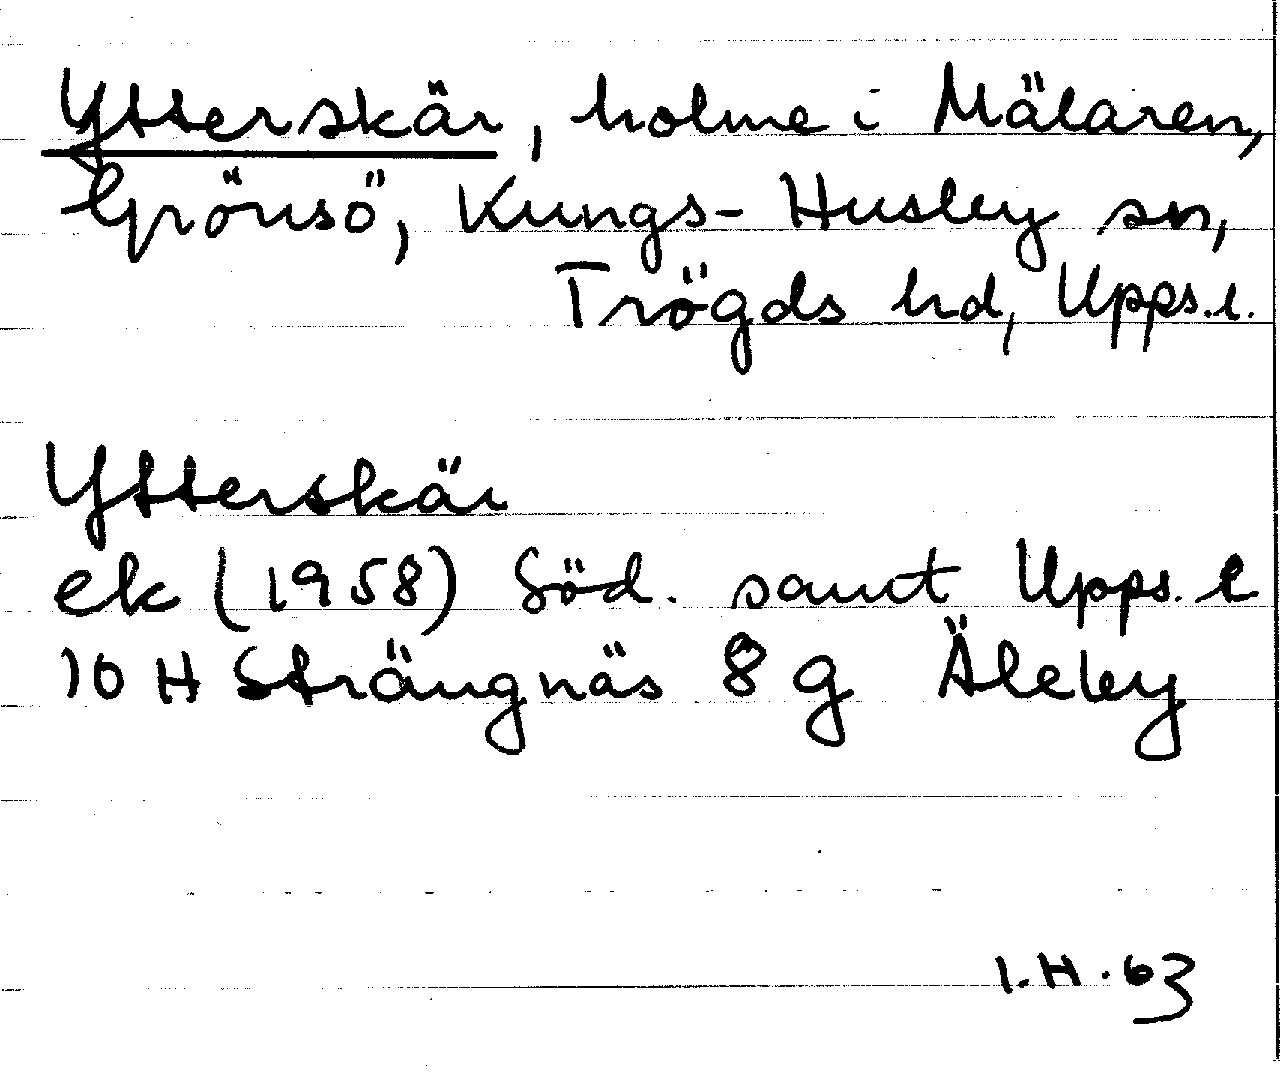 Ytterskär, holme i Mälaren,
Grönsö, Kungs-Husby sn,
Trögds hd, Upps.l.
Ytterskär
ek (1958) Söd. samt Upps. l
10 H Strängnäs 8 g Äleby
I.H.63